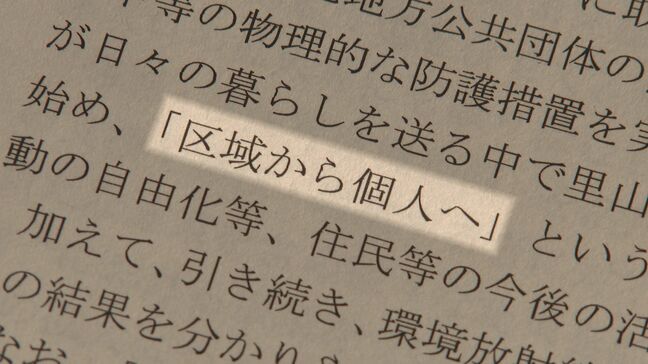 地方公共団体の
等の物理的な防護措置を実
が日々の暮らしを送る中で里山
始め、「区域から個人へ」という
動の自由化等、住民等の今後の活
加えて、引き続き、環境放射
の結果を分かり
なお